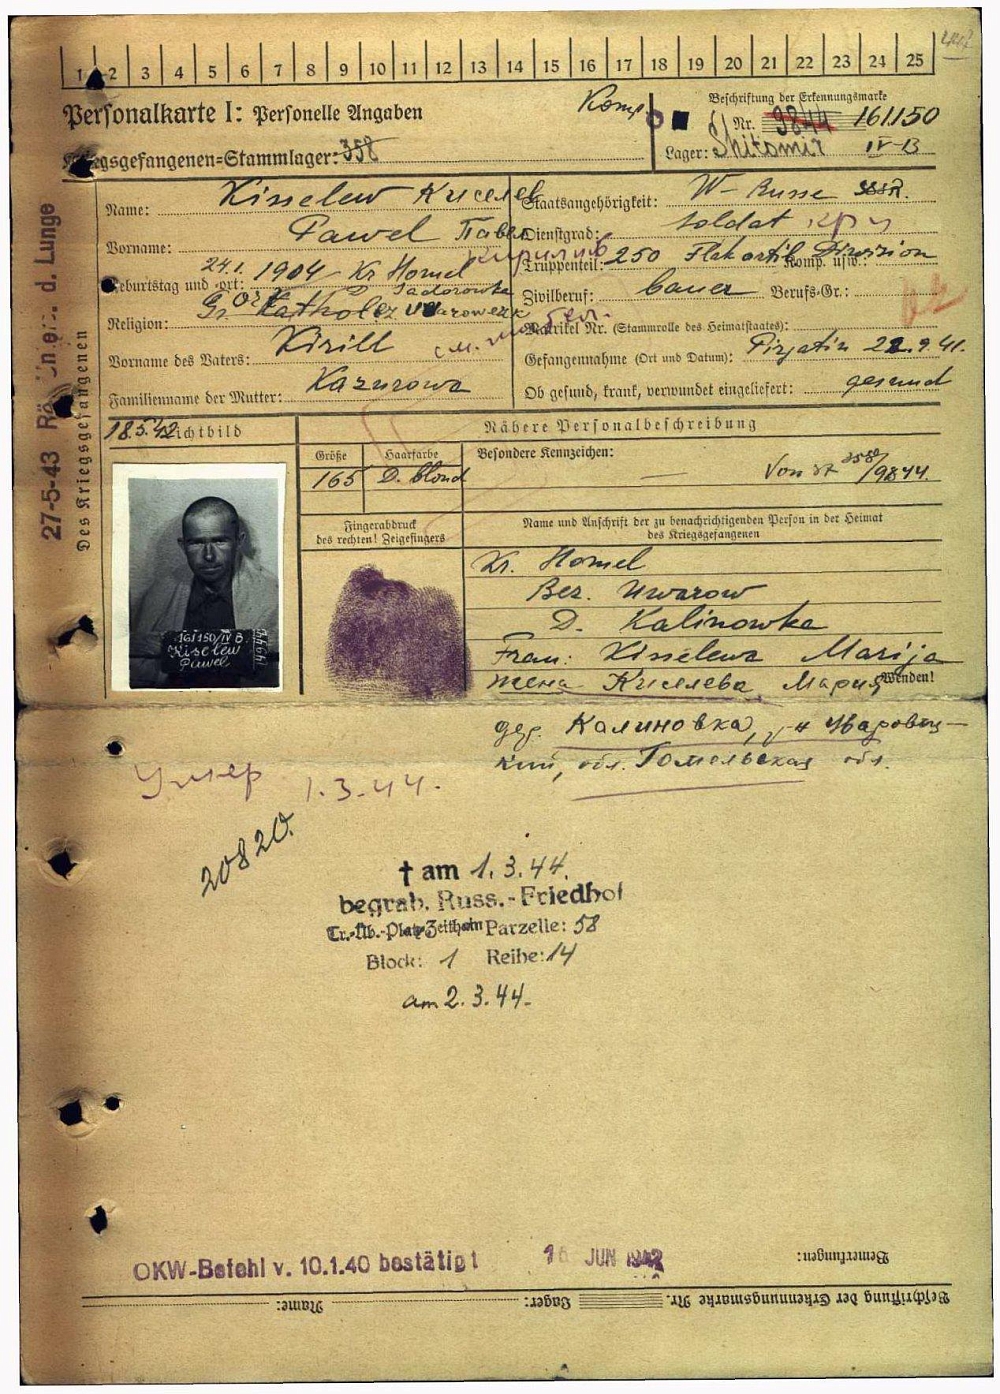 1 2 3 4 5 6 7 8 9 10 11 12 13 14 15 16 17 18 19 20 21 22 23 24 25
Personalkarte I: Personelle Angaben
Komp.
Beschriftung der Erkennungsmarke
Nr. 9844 161150
Kriegsgefangenen=Stammlager: 358
Lager: Shitomir IV-B
27-5-43 Röntgen. d. Lunge
Des Kriegsgefangenen
Name: Kisselew Киселев
Staatsangehörigkeit: W-Russe
Vorname: Pawel Павел
Кирилов
Dienstgrad: Soldat
Truppenteil: 250 Flakartil Division Komp. usw.:
Geburtstag und -ort: 24.1. 1904 Kr Homel
Zivilberuf: bauer Berufs-Gr.:
Religion: Gr Ort Kathol
Matrikel Nr. (Stammrolle des Heimatstaates):
Vorname des Vaters: Kirill
Gefangennahme (Ort und Datum): Pirjatin 22.9.41.
Familienname der Mutter: Kazurowa
Ob gesund, krank, verwundet eingeliefert: gesund
18.5.42 Lichtbild
Nähere Personalbeschreibung
Größe Haarfarbe Besondere Kennzeichen:
165 D. blond — Von St 358/9844.
Fingerabdruck
des rechten! Zeigefingers
Name und Anschrift der zu benachrichtigenden Person in der Heimat
des Kriegsgefangenen
Kr. Homel
Bez. Uwarow
D. Kalinowka
Frau: Kisselewa Marija
жена Киселева Мария
Wenden!
161150/IV B.
Kiselew
Pawel
дер. Калиновка, Уварович-
кий, обл. Гомельская обл.
Умер 1.3.44.
20820.
† am 1.3.44.
begrab. Russ.-Friedhof
Tr.-Üb.-Platz Zeithain Parzelle: 58
Block: 1 Reihe: 14
am 2.3.44.
OKW-Befehl v. 10.1.40 bestätigt
JUN 1942
Bemerkungen:
Beschriftung der Erkennungsmarke Nr. Lager: Name: